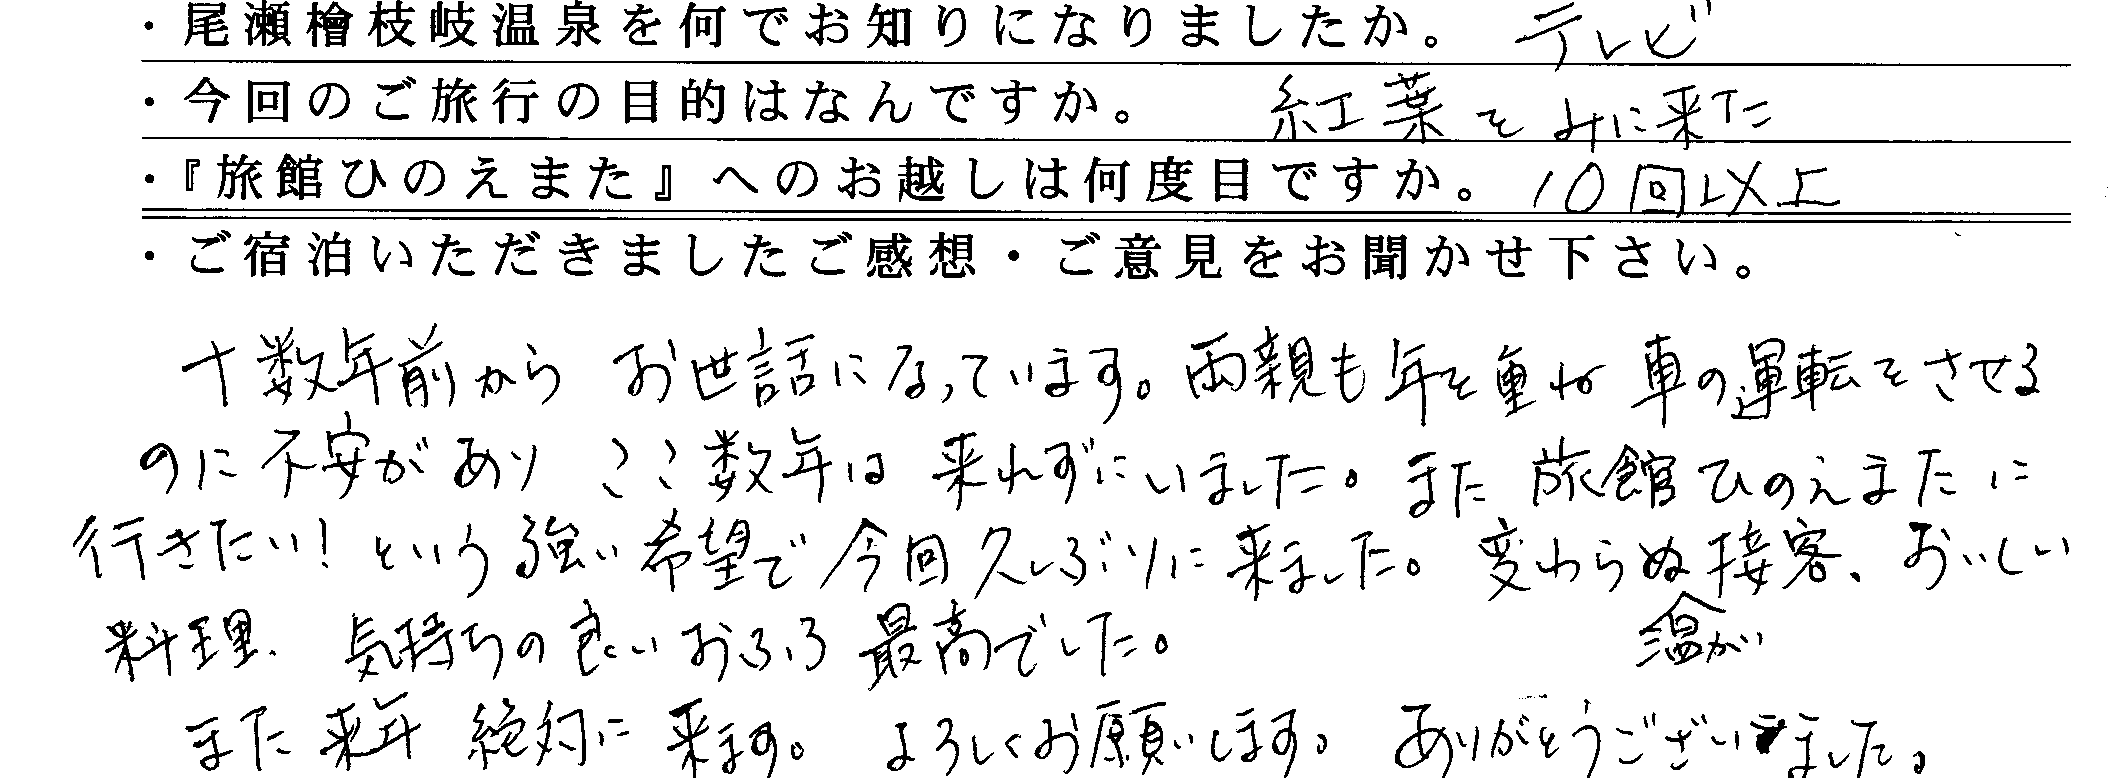 ・尾瀬檜枝岐温泉を何でお知りになりましたか。 テレビ
・今回のご旅行の目的はなんですか。 紅葉をみに来た
・『旅館ひのえまた』へのお越しは何度目ですか。 10回以上
・ご宿泊いただきましたご感想・ご意見をお聞かせ下さい。
十数年前から お世話になっています。両親も年を重ね 車の運転をさせる
のに不安があり ここ数年は 来れずにいました。また 旅館ひのえまたに
行きたい！という強い希望で今回久しぶりに来ました。変わらぬ接客、おいしい
温かい
料理、気持ちの良いおふろ 最高でした。
また来年 絶対に 来ます。 よろしくお願いします。 ありがとうございました。